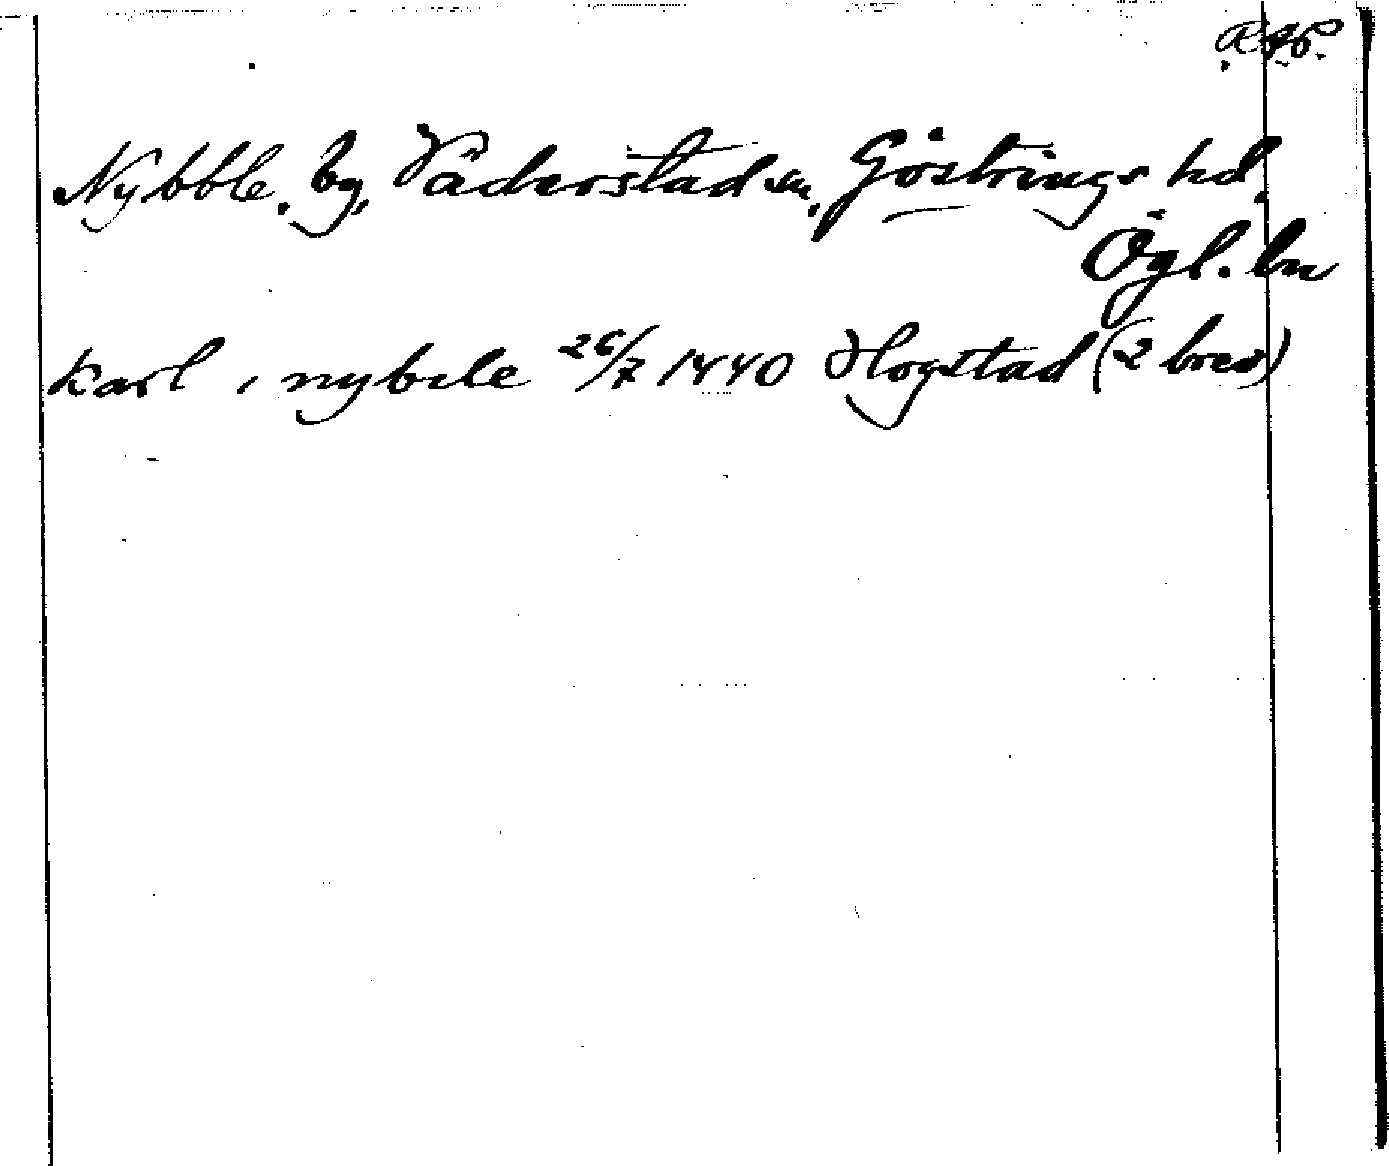 RAP.
Nybble, by, Väderstad sn, Göstrings hd.
Ögl. ln
karl i nybile 26/7 1440 Hogstad (2 brev)